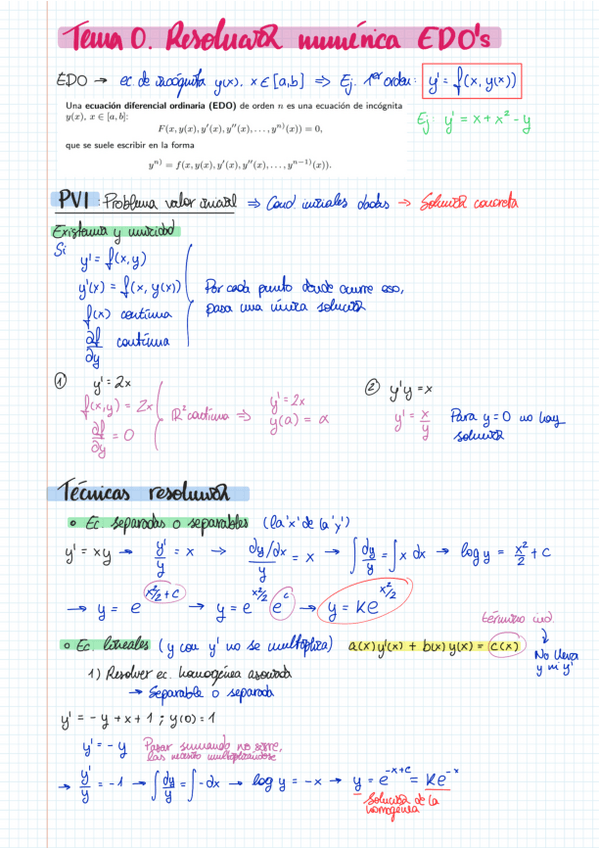 Tema 0. Resolución numérica EDO's
EDO → ec. de incógnita y(x). x ∈ [a,b] ⇒ Ej. 1er orden: y' = f(x, y(x))
Una ecuación diferencial ordinaria (EDO) de orden n es una ecuación de incógnita
y(x), x ∈ [a, b]:
F(x, y(x), y'(x), y''(x), . . . , yⁿ⁾(x)) = 0,
que se suele escribir en la forma
yⁿ⁾ = f(x, y(x), y'(x), y''(x), . . . , yⁿ⁻¹⁾(x)).
Ej: y' = x + x² - y
PVI: Problema valor inicial ⇒ Cond iniciales dadas → Solución concreta
Existencia y unicidad
Si
y' = f(x,y)
y'(x) = f(x, y(x))
f(x) continua
∂f/∂y continua
Por cada punto donde ocurre eso,
pasa una única solución
① y' = 2x
f(x,y) = 2x
∂f/∂y = 0
ℝ² continua ⇒
y' = 2x
y(a) = α
② y'y = x
y' = x/y
Para y=0 no hay
solución
Técnicas resolución
• Ec. separadas o separables (la 'x' de la 'y')
y' = xy → y'/y = x → dy/dx / y = x → ∫ dy/y = ∫ x dx → log y = x²/2 + c
→ y = e^(x²/2 + c) → y = e^(x²/2) e^c → y = Ke^(x²/2)
• Ec lineales (y con y' no se multiplica) a(x)y'(x) + b(x)y(x) = c(x)
término ind
↓
No lleva
y ni y'
1) Resolver ec. homogénea asociada
→ Separable o separada
y' = -y + x + 1 ; y(0) = 1
y' = -y
Pasar sumando no sirve,
las necesito multiplicándose
→ y'/y = -1 → ∫ dy/y = ∫ -dx → log y = -x → y = e^(-x+c) = Ke^(-x)
solución de la
homogénea